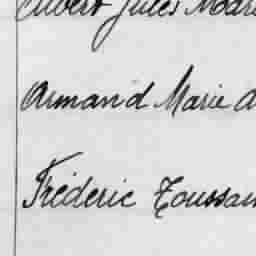 Albert Jules Marie
Armand Marie
Fréderic Toussain